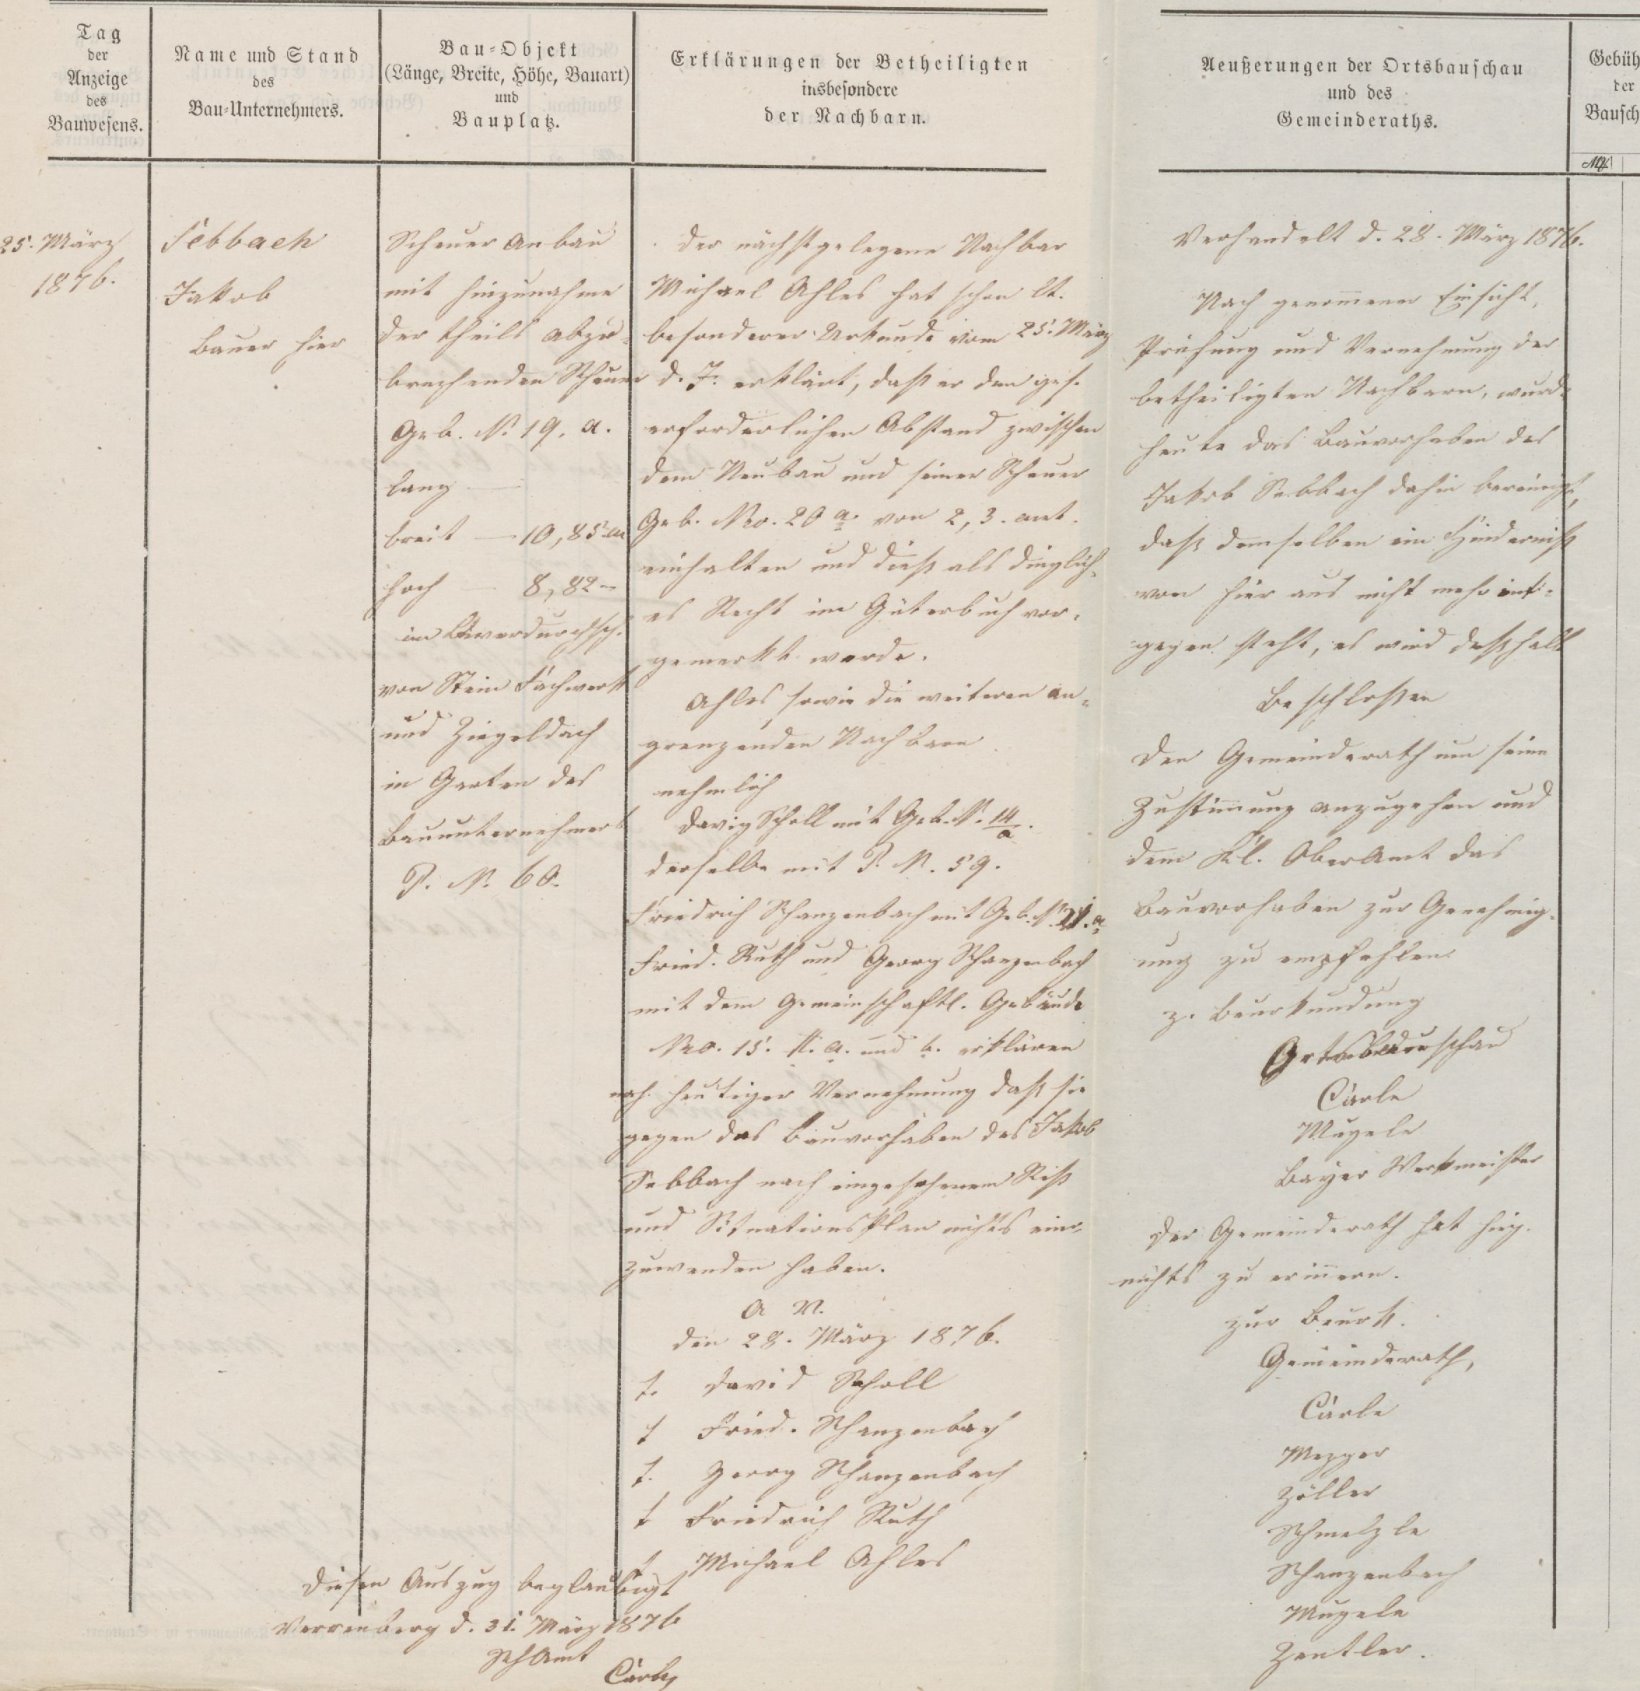 Tag
der
Anzeige
des
Bauwesens.
Name und Stand
des
Bau-Unternehmers.
Bau-Objekt
(Länge, Breite, Höhe, Bauart)
und
Bauplatz.
Erklärungen der Betheiligten
insbesondere
der Nachbarn.
Aeußerungen der Ortsbauschau
und des
Gemeinderaths.
Gebüh
der
Bausch
25. März
1876.
Sebbach
Jakob
Bauer hier
Scheuer Anbau
mit Hinzunahme
der theils abzu-
brechenden Scheuer
Geb. N. 19. a.
lang —
breit — 10,85 m
hoch — 8,82 —
im Querdurchsch.
von Stein Fachwerk
und Ziegeldach
in Garten des
Bauunternehmers
P. N. 60.
Der nächstgelegene Nachbar
Michael Ahles hat schon lt.
besonderer Urkunde vom 25. März
d. J. erklärt, daß er den ges.
erforderlichen Abstand zwischen
dem Neubau und seiner Scheuer
Geb. No. 20 a von 2,3. mt.
einhalten und dieß als dinglich-
es Recht im Güterbuch vor-
gemerkt werde.
Ahles sowie die weiteren an-
grenzenden Nachbarn
nehmlich
David Scholl mit Geb. N. 14/a.
derselbe mit P. N. 59.
Friedrich Schanzenbach mit Geb. N. 21. a
Fried. Ruth und Georg Schanzenbach
mit dem gemeinschaftl. Gebäude
No. 15. a. und b. erklären
nach heutiger Vernehmung daß sie
gegen das Bauvorhaben des Jakob
Sebbach nach eingesehenem Riß
und Situationsplan nichts ein-
zuwenden haben.
den 28. März 1876.
t. David Scholl
t Fried. Schanzenbach
t. Georg Schanzenbach
t Friedrich Ruth
t Michael Ahles
Diesen Auszug beglaubigt
Verrenberg d. 31. März 1876
SchAmt
Carle
Verhandelt d. 28. März 1876.
Nach genommener Einsicht,
Prüfung und Vernehmung der
betheiligten Nachbarn, wurde
heute das Bauvorhaben des
Jakob Sebbach dahin bereinigt,
daß demselben ein Hinderniß
von hier aus nicht mehr ent-
gegen steht, es wird deßhalb
Beschloßen
den Gemeinderath um seine
Zustimmung anzugehen und
dem K. OberAmt das
Bauvorhaben zur Genehmig-
ung zu empfehlen
z. Beurkundung
Ortsbauschau
Carle
Mugele
Bayer Werkmeister
Der Gemeinderath hat hieg.
nichts zu erinnern.
zur Beurk.
Gemeinderath,
Carle
Mezger
Zoller
Schmelzle
Schanzenbach
Mugele
Zentler.